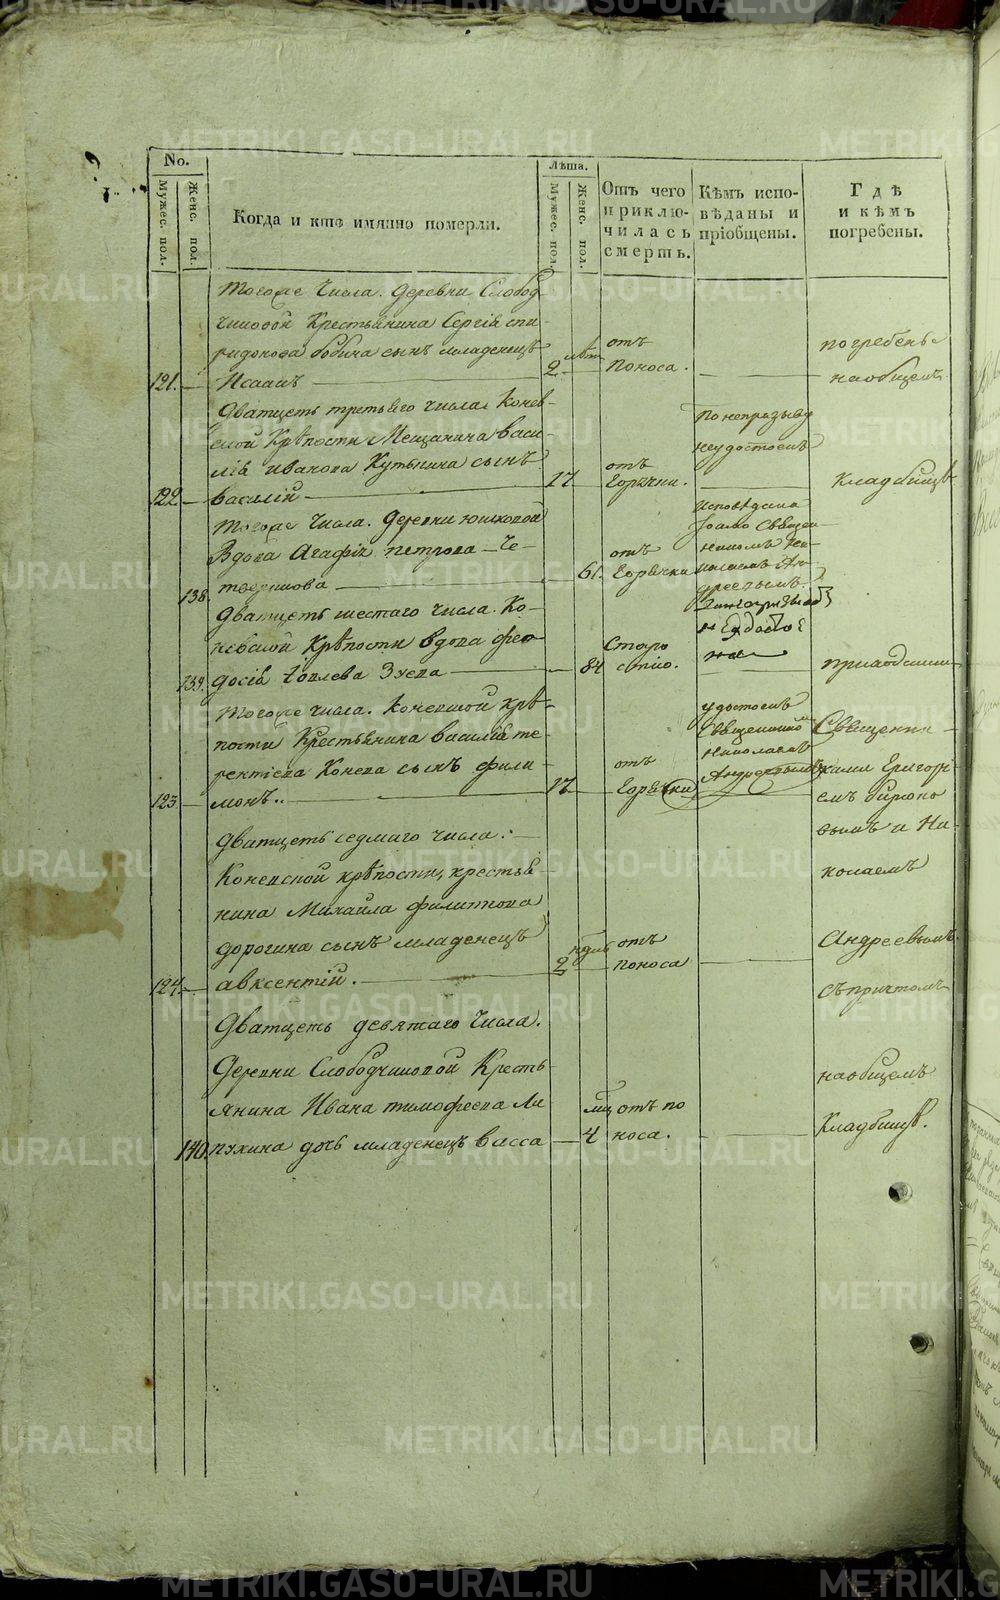 METRIKI.GASO-URAL.RU
No.
Мужес. пол.
Женс. пол.
Когда и кто имянно померли.
Лѣта.
Мужес. пол.
Женс. пол.
Отъ чего
приклю-
чилась
смерть.
Кѣмъ испо-
вѣданы и
пріобщены.
Гдѣ
и кѣмъ
погребены.
Тогоже числа. Деревни Слобод-
чиковой Крестьянина Сергія спи-
ридонова Бобина сынъ младенецъ
121. Исаакъ
2 лѣт
отъ
поноса.
погребены
наобщемъ
Дватцеть третьяго числа Конев-
ской Крѣпости Мещанина васи-
лія иванова Кутькина сынъ
122 василій
17
отъ
Горячки.
По непризыву
неудостоенъ
кладбищѣ
Тогоже числа. Деревни юшковой
Вдова Агафія петрова Че-
138. твернинова
61.
отъ
Горячки
исповѣдана
Священ-
никомъ Ни-
колаемъ Ан-
дреевымъ.
Дватцеть шестаго числа. Ко-
невской Крѣпости вдова фео-
139. досія Зуева
84
Старо
стію.
приходскими
Тогоже числа. Коневской крѣ-
пости Крестьянина василія те-
рентіева Конева сынъ фили-
123. монъ..
17
отъ
Горячки
удостоенъ
Священникомъ
Николаемъ
Андреевымъ
Священни-
ками Григорі-
емъ Бирюко
вымъ и Ни-
колаемъ
Андреевымъ.
съ причтомъ
наобщемъ
Кладбищѣ.
Дватцеть седмаго числа.
Коневской крѣпости, крестья
нина Михайла филиппова
дорогина сынъ младенецъ
124. авксентій.
2 ндл
отъ
поноса
Дватцеть девятаго числа.
Деревни Слободчиковой Кресть
янина Ивана тимофеева Ли
140. пухина дочь младенецъ васса
4 мц
отъ по
носа.